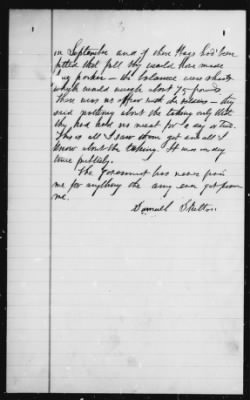 in September and if those Hogs had been
fatted that fall they would have made
big porkers - the balance was shoats
which would weigh about 75 pounds
There was no officer with the soldiers - they
said nothing about the taking only that
they had had no meat for a day or two.
This is all I saw them get and all I
know about the taking. It was in day
time publicly.
The Government has never paid
me for anything the army ever got from
me.
Samuel Shelton